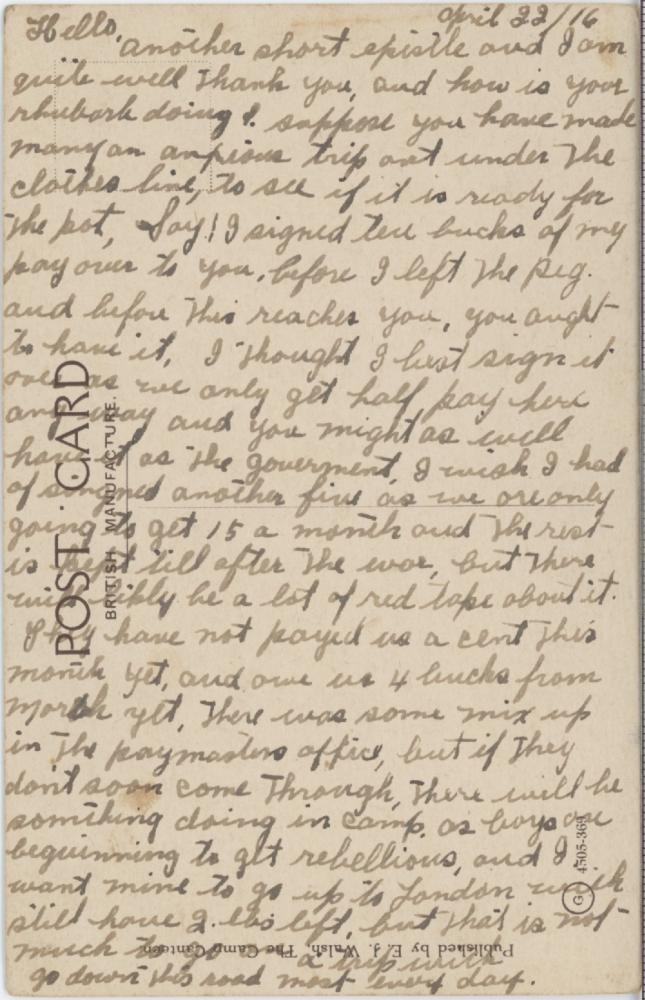 April 22/16
Hello,
another short epistle and I am
quite well thank you, and how is your
rhubarb doing I suppose you have made
many an anxious trip out under the
clothes line, to see if it is ready for
the pot, Say! I signed ten bucks of my
pay over to you, before I left the Peg.
and before this reaches you, you aught
to have it, I thought I best sign it
over as we only get half pay here
any way and you might as well
have it as the goverment, I wish I had
of singned another five as we are only
going to get 15 a month and the rest
is kept till after the war, but there
will be a lot of red tape about it.
They have not payed us a cent this
month yet, and owe us 4 bucks from
March yet, There was some mix up
in the paymasters office, but if they
dont soon come through, there will be
something doing in camp. as boys are
beguinning to get rebellious, and I
want mine to go up to London with
still have 2 lbs left, but that is not
much to go on a trip with
go down this road most every day.
POST CARD
BRITISH MANUFACTURE.
G. 4505-369
Published by E. J. Walsh, The Camp Canteen